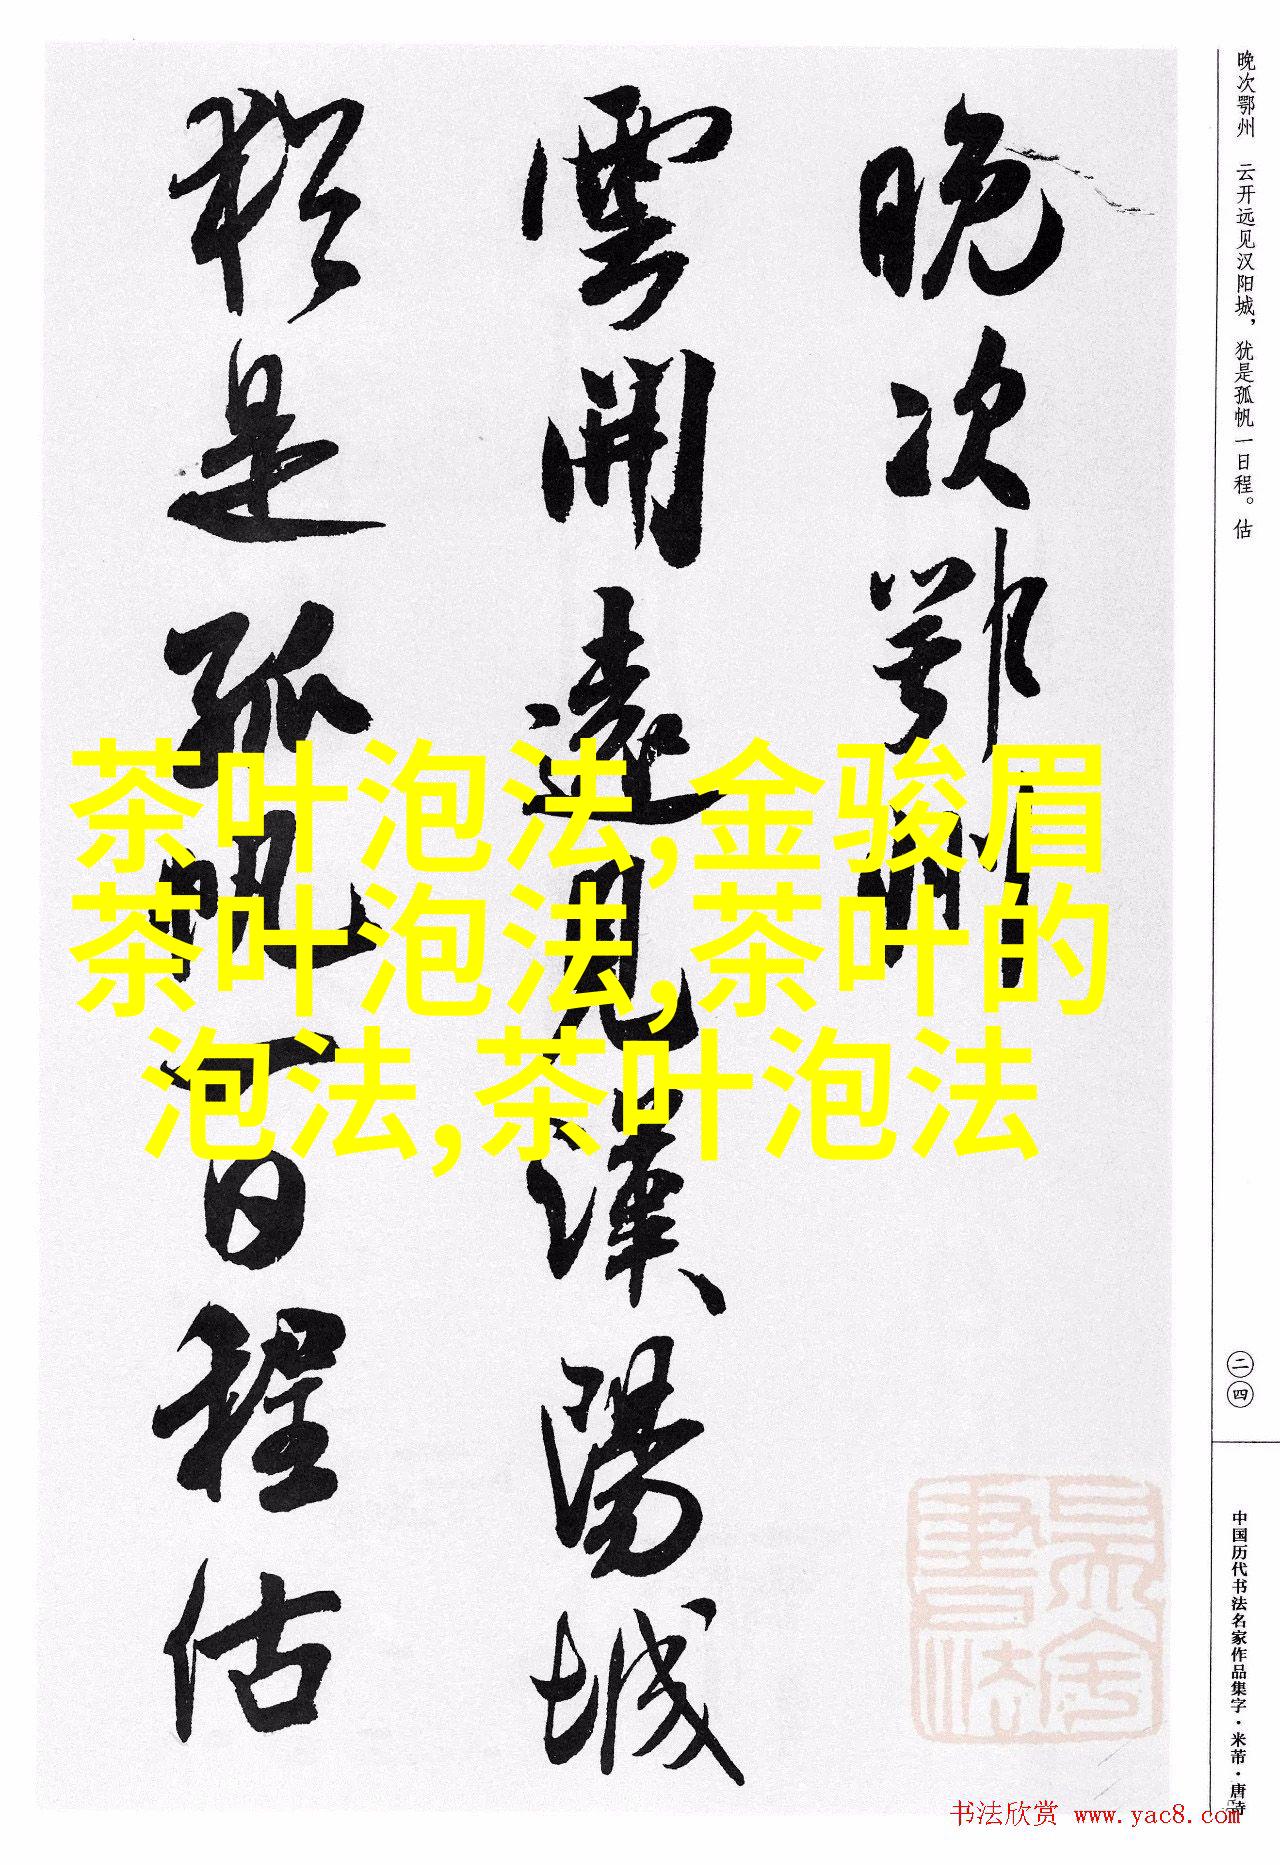 晚次鄂州
雲開遠見漢陽城
猶是孤帆一日程估
茶叶泡法,金骏眉
茶叶泡法,茶叶的
泡法,茶叶泡法
晚次鄂州 云开远见汉阳城，犹是孤帆一日程。估
二四
中国历代书法名家作品集字·米芾·唐诗
书法欣赏 www.yac8.com